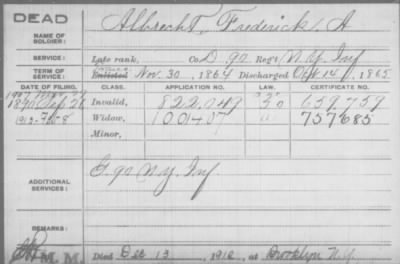 DEAD
NAME OF SOLDIER:
Albrecht, Frederick A
SERVICE:
Late rank, Co D 90 Reg't N.Y. Inf
TERM OF SERVICE:
Enlisted Nov. 30, 1864 Discharged 14, 1865
DATE OF FILING. CLASS. APPLICATION NO. LAW. CERTIFICATE NO.
1890 Sep 26 Invalid, 822,049 "3" 659,759
1913-Feb-8 Widow, 1001407 " 757685
Minor,
ADDITIONAL SERVICES:
G. 90 N.Y. Inf.
REMARKS:
M. M. Died Dec 13, 1912, at Brooklyn N.Y.